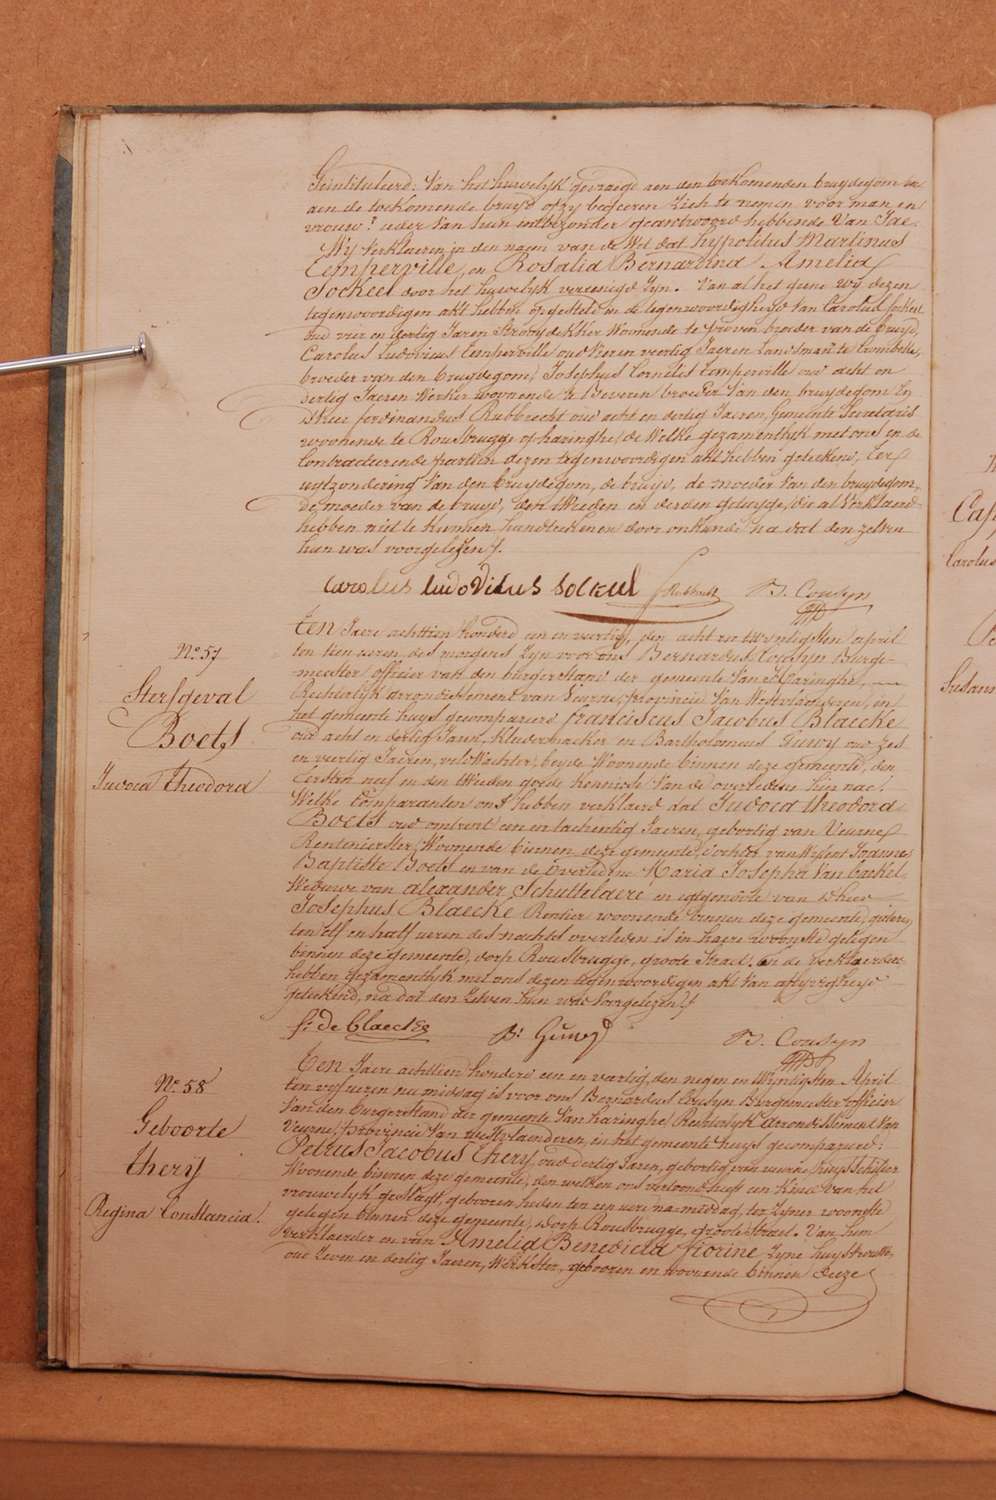 Geïntituleerd: Van het huwelyk gevraegd aen den toekomenden bruydegom en
aen de toekomende bruyd of zy begeeren zich te nemen voor man en
vrouw? ieder van hun intbezonder geantwoord hebbende Van Jae.
Wy Verklaeren in den naem van de Wet dat hypolitus Martinus
Temperville, en Rosalia Bernardina Amelia
Sockeel door het huwelyk vereenigd zyn. Van al het gene wy dezen
tegenwoordigen akt hebben opgesteld in de tegenwoordigheyd Van Carolus Sockeel
oud vier en dertig Jaren Strooydekker Woonende te Proven broeder van de bruyd,
Carolus Ludovicus Temperville oud vier en veertig Jaeren Landsman te Crombeke,
broeder van den bruydegom, Josephus Cornilis Temperville oud acht en
dertig Jaeren Werker woonende te Beveren broeder Van den bruydegom En
d'heer ferdinandus Rubbrecht oud acht en dertig Jaeren, Gemeente Secretaris
woonende te Rousbrugge op haringhe, de Welke gezamentlyk met ons en de
Contracteerende partien dezen tegenwoordigen akt hebben geteekend, ter
uytzondering Van den bruydegom, de bruyd, de moeder van den bruydegom,
de moeder van de bruyd, den Tweeden en derden getuyge, die al Verklaerd
hebben niet te kunnen handteekenen door onkunde na dat den zelven
hun was voorgelezen.
Carolus ludovicus Sockeel f Rubbrecht B. Cousyn
N.o 57
Sterfgeval
Boets
Judoca Theodora
Ten Jaere achttien honderd een en veertig, den acht en twyntigsten april
ten tien ueren des morgens Zyn voor ons Bernardus Cousyn Burge-
meester officier van den burgerstand der gemeente Van Haringhe,
Rechterlyk arrondissement van Veurne, provincie Van Westvlaenderen, in
het gemeente huys gecompareerd franciscus Jacobus Blaecke
oud acht en dertig Jaren, Kleedermaeker en Bartholomeus Guwy oud Zes
en veertig Jaeren, veldwachter, beyde Woonende binnen deze gemeente, den
Eersten neef en den Tweeden goede kennisse Van de overledene hier nae.
Welke Comparanten ons hebben verklaerd dat Judoca theodora
Boets oud omtrent een en tachentig Jaeren, gebortig van Veurne
Rentenierster, Woonende binnen deze gemeente, dochter van Wylent Joannes
Baptiste Boets en van de overledene Maria Josepha Van Caekel
Weduwe van alexander Schuttelaere en egtgenote van d'heer
Josephus Blaecke Rentier woonende binnen deze gemeente, gisteren
ten elf en half ueren des nachts overleden is in haere woonste gelegen
binnen deze gemeente, dorp Rousbrugge, groote Straet, en de verklaerders
hebben gezamentlyk met ons dezen tegenwoordigen akt Van aflyvigheyd
geteekend, na dat den Zelven hun was Voorgelezen.
fs: de blaecke B: Guwy B. Cousyn
N.o 58
Geboorte
thery
Regina Constancia.
Ten Jaere achttien honderd een en veertig, den negen en twyntigsten April
ten vyf ueren na middag is voor ons Bernardus Cousyn Burgemeester officier
Van den burgerstand der gemeente Van haringhe Rechterlyk Arrondissement Van
Veurne, provincie Van westvlaenderen, in het gemeente huys gecompareerd:
Petrus Jacobus thery, oud dertig Jaren, gebortig van veurne
Woonende binnen deze gemeente, den welken ons vertoond heeft een Kind van het
vrouwelyk geslagt, gebooren heden ten een uere na middag, ter Zyner woonste
gelegen binnen deze gemeente, dorp Rousbrugge, groote Straet, Van hem
verklaerder en van Amelia Benedicta fiorine Zyne huysvrouwe,
oud Zeven en dertig Jaeren, Werkster, gebooren en woonende binnen deze